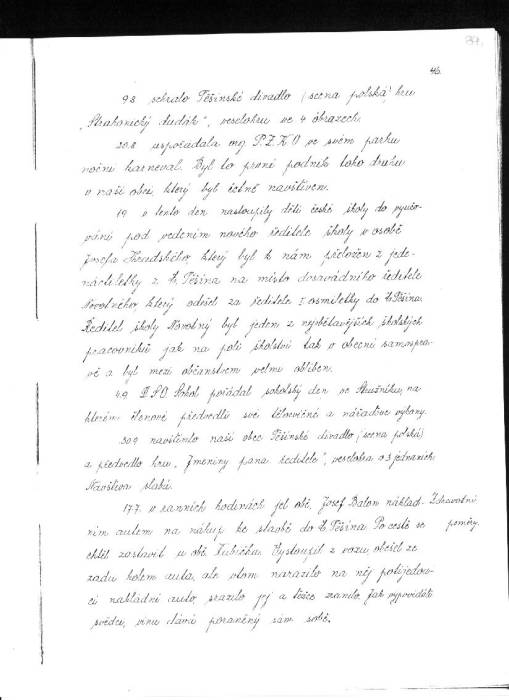 46.
9.8. sehrálo Těšínské divadlo (scena polská) hru
"Strakonický dudák", veselohru ve 4 obrazech.
20.8. uspořádala org. P.Z.K.O ve svém parku
noční karneval. Byl to první podnik toho druhu
v naší obci který byl četně navštíven.
1.9. v tento den nastoupily děti české školy do vyučo-
vání pod vedením nového ředitele školy v osobě
Josefa který byl k nám přeložen z jede-
náctiletky z Č. Těšína na místo dosavádního ředitele
Novotného, který odešel za ředitele I. osmiletky do Č. Těšína.
Ředitel školy Novotný byl jeden z nejobětavějších školských
pracovníků jak na poli školství tak v obecní samosprá-
vě a byl mezi občanstvem velmi oblíben.
4.9. Sokol pořádal sokolský den ve Stružníku, na
kterém členové předvedli své tělocvičné a nářaďové výkony.
30.9. navštívilo naši obec Těšínské divadlo (scena polská)
a předvedlo hru "Jmeniny pana ředitele", veselohra o 3 jednáních
Návštěva slabá.
17.7. v ranních hodinách jel obč. Josef Baton náklad- Zdravotní
ním autem na nákup ke stavbě do Č. Těšína. Po cestě se poměry.
chtěl zastavit u obč. Kubička. Vystoupil z vozu, obešel ze
zadu kolem auta, ale vtom narazilo na něj protijedou-
cí nákladní auto, srazilo jej a těžce zranilo. Jak vypovídali
svědci, vinu dává poraněný sám sobě.